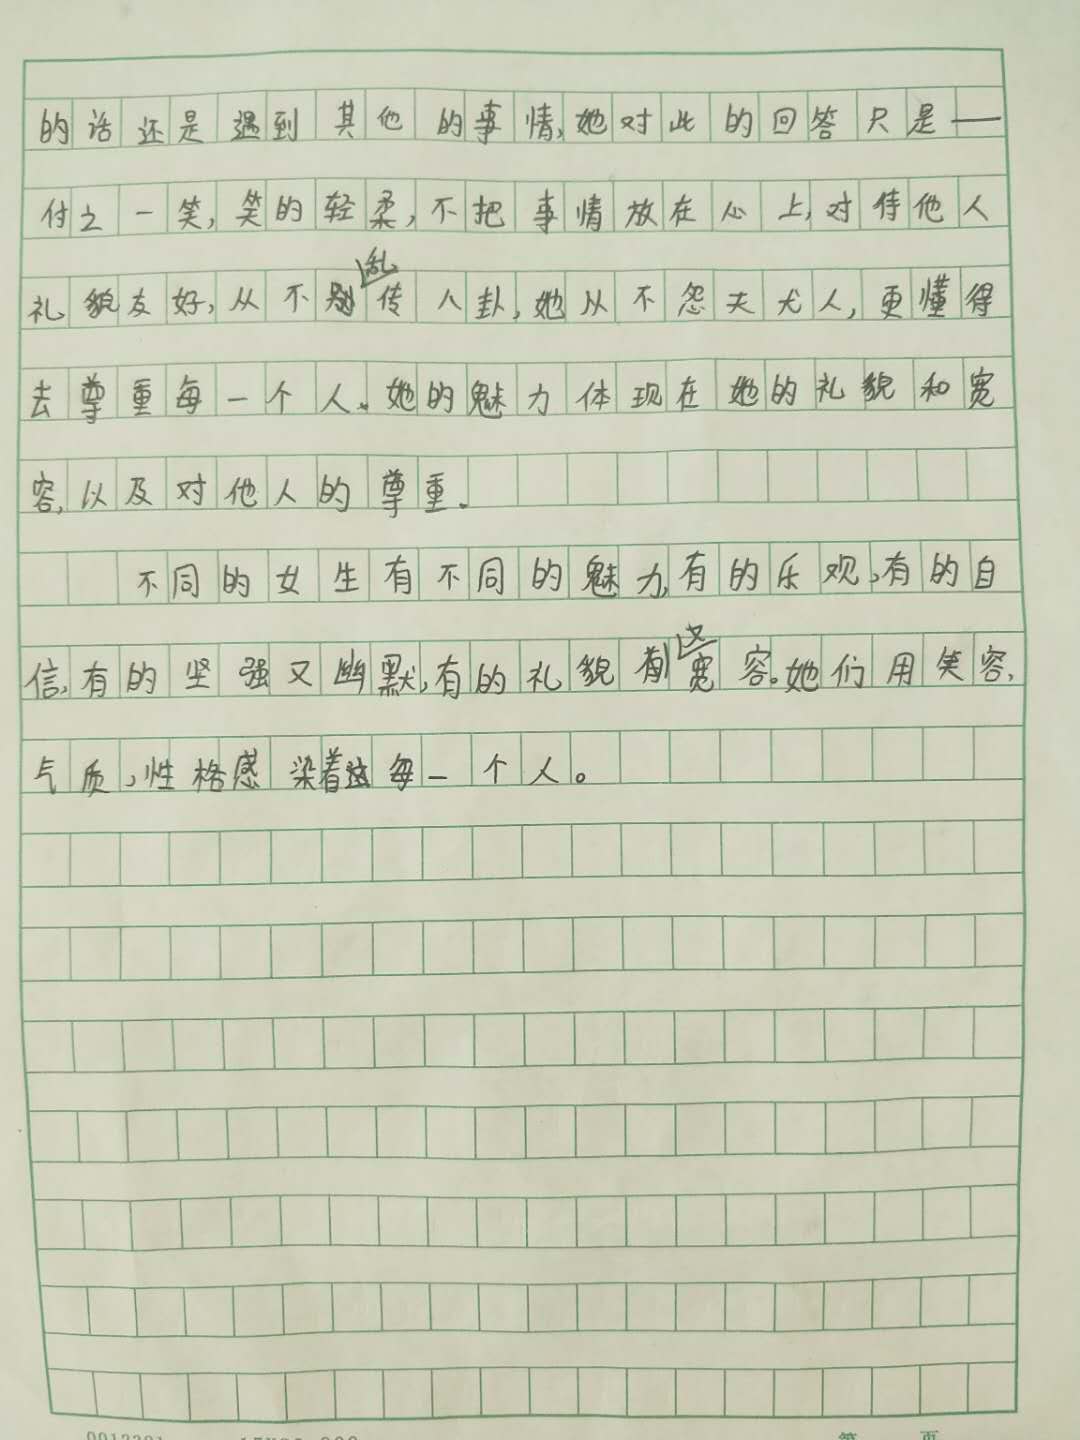 的话还是遇到其他的事情,她对此的回答只是——
付之一笑,笑的轻柔,不把事情放在心上,对待他人
礼貌友好,从不乱传八卦,她从不怨天尤人,更懂得
去尊重每一个人.她的魅力体现在她的礼貌和宽
容,以及对他人的尊重.
不同的女生有不同的魅力,有的乐观,有的自
信,有的坚强又幽默,有的礼貌又宽容。她们用笑容,
气质,性格感染着每一个人。
第 页